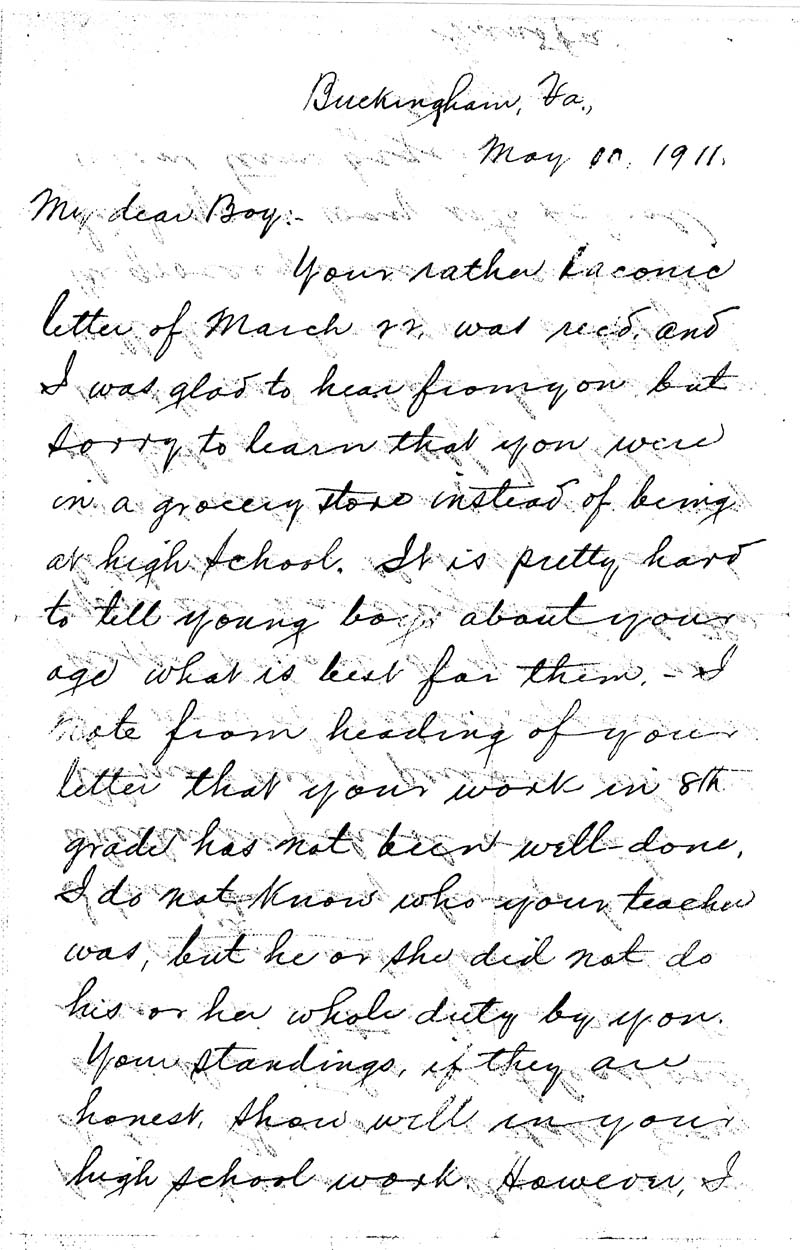 Buckingham, Va.,
May 1911.
My dear Boy:-
Your rather laconic
letter of March 22, was rec'd. and
I was glad to hear from you but
sorry to learn that you were
in a grocery store instead of being
at high school. It is pretty hard
to tell young boys about your
age what is best for them. - I
note from heading of your
letter that your work in 8th
grade has not been well-done.
I do not know who your teacher
was, but he or she did not do
his or her whole duty by you.
Your standings, if they are
honest, show well in your
high school work. However, I